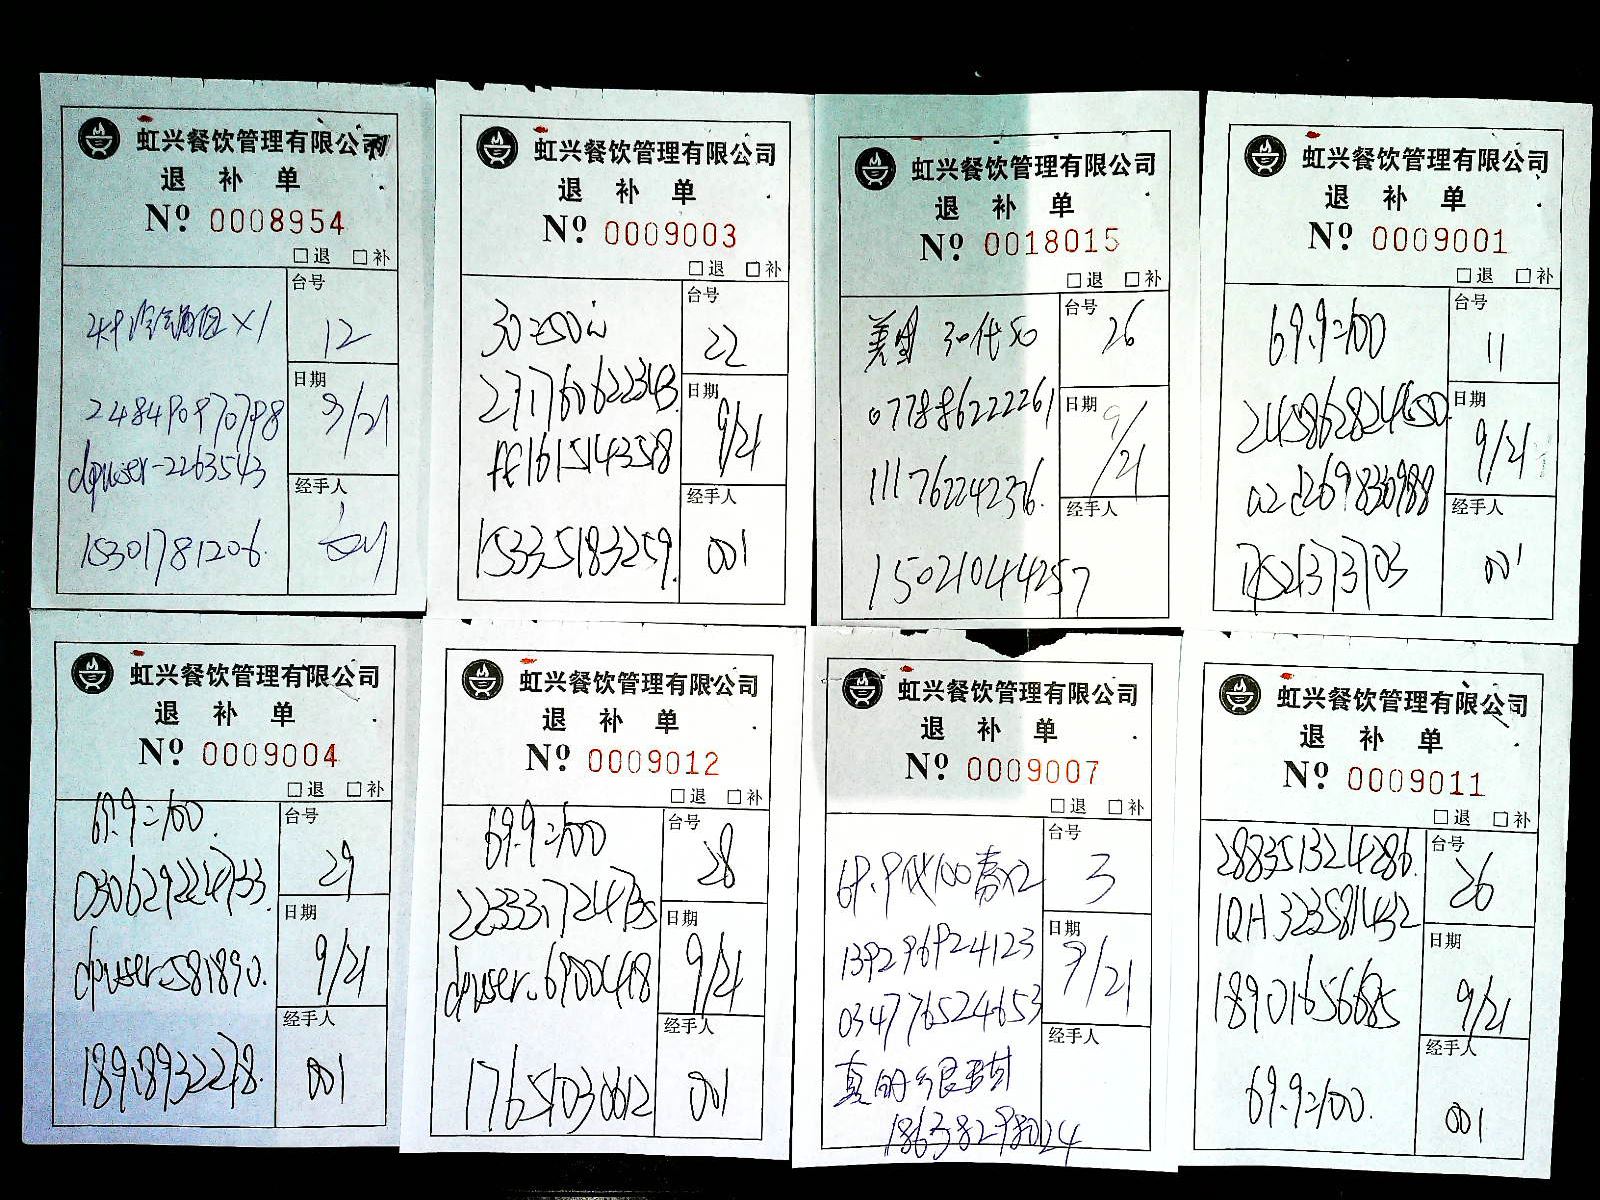 虹兴餐饮管理有限公司
退 补 单
Nº 0008954
□退 □补
台号
12
×1
日期
9/21
248490970798
dpuser-2263543
经手人
15301781206
虹兴餐饮管理有限公司
退 补 单
Nº 0009003
□退 □补
台号
22
日期
9/21
经手人
15335183259
001
虹兴餐饮管理有限公司
退 补 单
Nº 0018015
□退 □补
台号
26
美团 30代50
日期
9/21
077886222261
111762242376
经手人
15021044257
虹兴餐饮管理有限公司
退 补 单
Nº 0009001
□退 □补
台号
11
69.9=100
日期
9/21
经手人
001
虹兴餐饮管理有限公司
退 补 单
Nº 0009004
□退 □补
69.9=100
台号
29
日期
9/21
dpuser-581890
经手人
001
虹兴餐饮管理有限公司
退 补 单
Nº 0009012
□退 □补
69.9=100
台号
28
日期
9/21
经手人
17651030612
001
虹兴餐饮管理有限公司
退 补 单
Nº 0009007
□退 □补
台号
3
69.9代100套x2
日期
9/21
139296924123
034776524653
经手人
虹兴餐饮管理有限公司
退 补 单
Nº 0009011
□退 □补
2883513214286
台号
26
1QH323581432
日期
9/21
18901656685
经手人
69.9=100
001